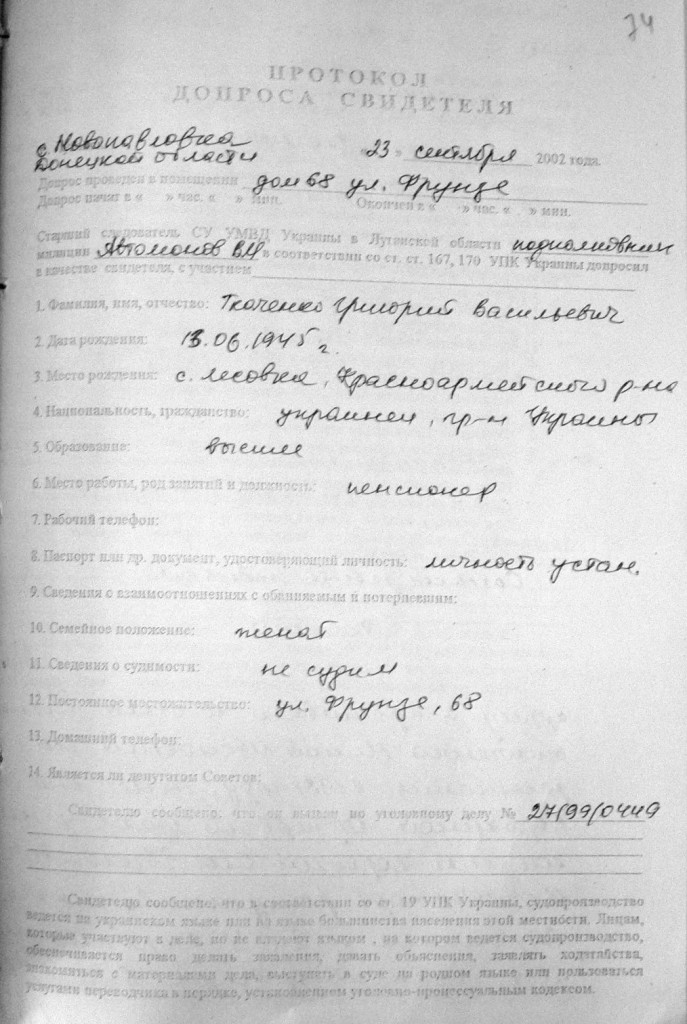 74
ПРОТОКОЛ
ДОПРОСА СВИДЕТЕЛЯ
с Новопавловка
Донецкой области
«23» сентября 2002 года.
Допрос проведен в помещении дом 68 ул. Фрунзе
Допрос начат в « » час. « » мин. Окончен в « » час. « » мин.
Старший следователь СУ УМВД Украины в Луганской области подполковник
милиции Автомонов В.Н в соответствии со ст. ст. 167, 170 УПК Украины допросил
в качестве свидетеля, с участием
1. Фамилия, имя, отчество: Ткаченко Григорий Васильевич
2. Дата рождения: 13.06.1945 г.
3. Место рождения: с. Лесовка, Красноармейского р-на
4. Национальность, гражданство: украинец, гр-н Украины
5. Образование: высшее
6. Место работы, род занятий и должность: пенсионер
7. Рабочий телефон:
8. Паспорт или др. документ, удостоверяющий личность: личность устан.
9. Сведения о взаимоотношениях с обвиняемым и потерпевшим:
10. Семейное положение: женат
11. Сведения о судимости: не судим
12. Постоянное местожительство: ул. Фрунзе, 68
13. Домашний телефон:
14. Является ли депутатом Советов:
Свидетелю сообщено, что он вызван по уголовному делу № 27/99/0449
Свидетелю сообщено, что в соответствии со ст. 19 УПК Украины, судопроизводство
ведется на украинском языке или на языке большинства населения этой местности. Лицам,
которые участвуют в деле, но не владеют языком , на котором ведется судопроизводство,
обеспечивается право делать заявления, давать объяснения, заявлять ходатайства,
знакомиться с материалами дела, выступать в суде на родном языке или пользоваться
услугами переводчика в порядке, установленном уголовно-процессуальным кодексом.